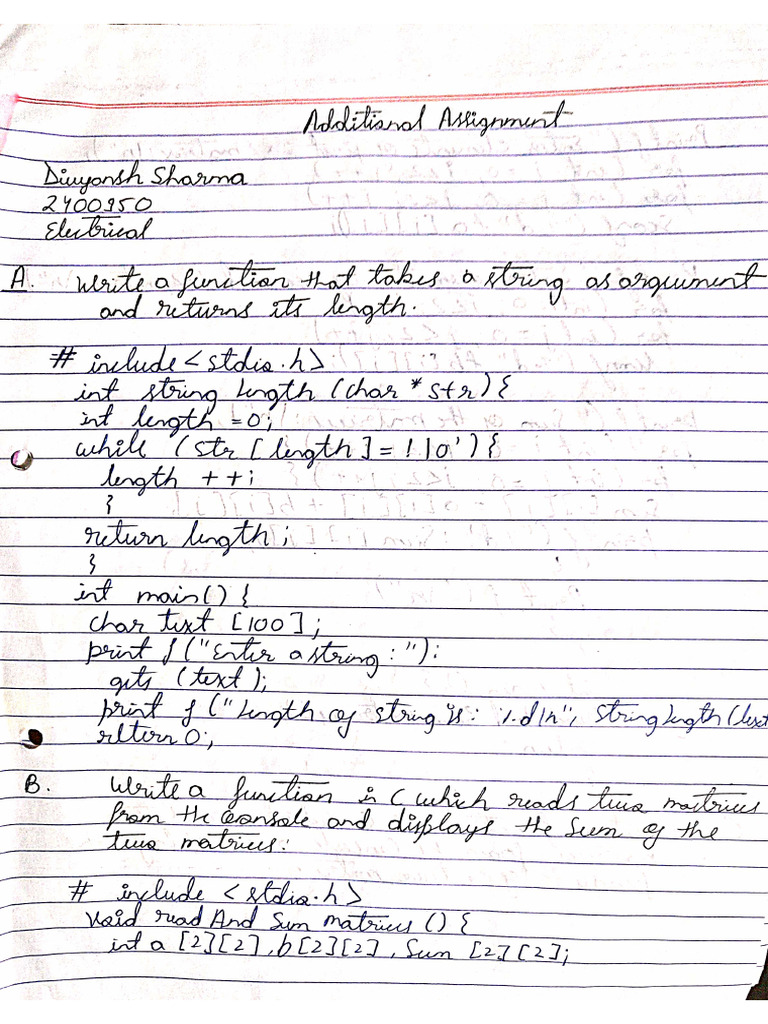 Additional Assignment
Divyansh Sharma
2400950
Electrical
A. Write a function that takes a string as argument
and returns its length.
# include <stdio.h>
int string length (char *str) {
int length = 0;
while (str [length] = ! \0') {
length ++;
}
return length;
}
int main() {
char text [100];
print f ("Enter a string : "):
gets (text);
print f ("Length of string is: %d\n", string length (text
return 0;
B. Write a function in C which reads two matrices
from the console and displays the sum of the
two matrices:
# include <stdio.h>
void read And Sum matrices () {
int a [2][2], b[2][2], Sum [2][2];